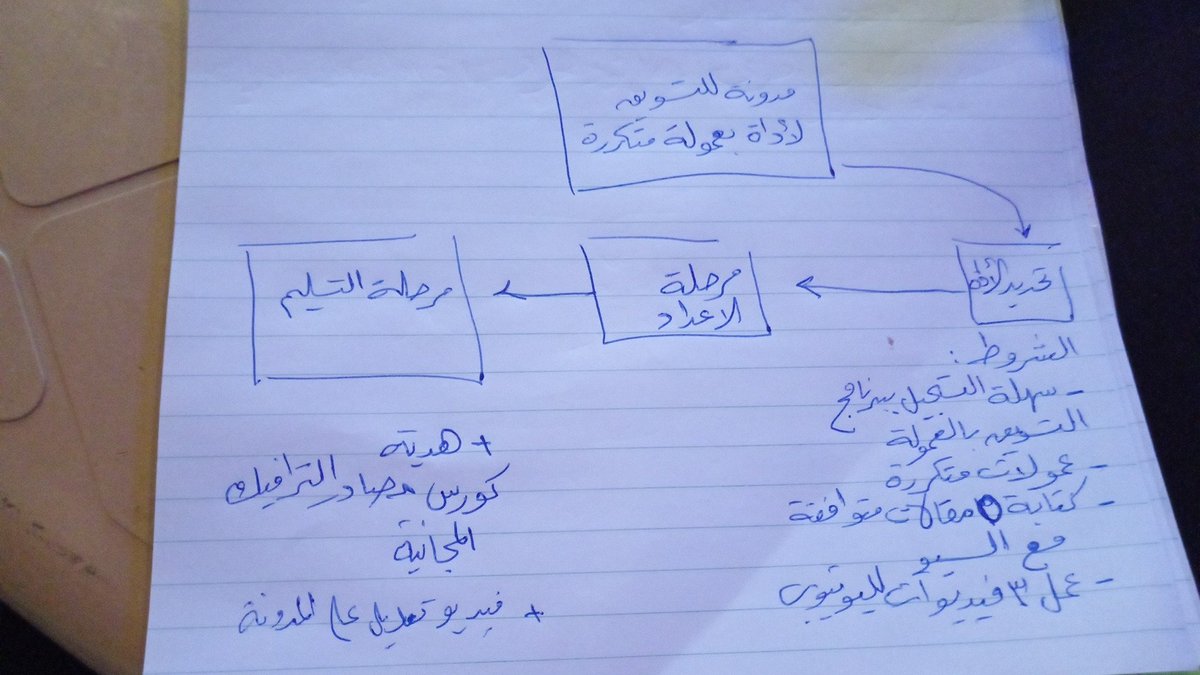 مدونة للتسويق
لأداة بعمولة متكررة
تحديد الأداة
مرحلة
الاعداد
مرحلة التسليم
الشروط:
- سهلة التسجيل ببرنامج
التسويق بالعمولة
- عمولات متكررة
- كتابة مقالات متوافقة
مع السيو
- عمل ٣ فيديوهات لليوتيوب
+ هدية
كورس مصادر الترافيك
المجانية
+ فيديو تعديل على المدونة